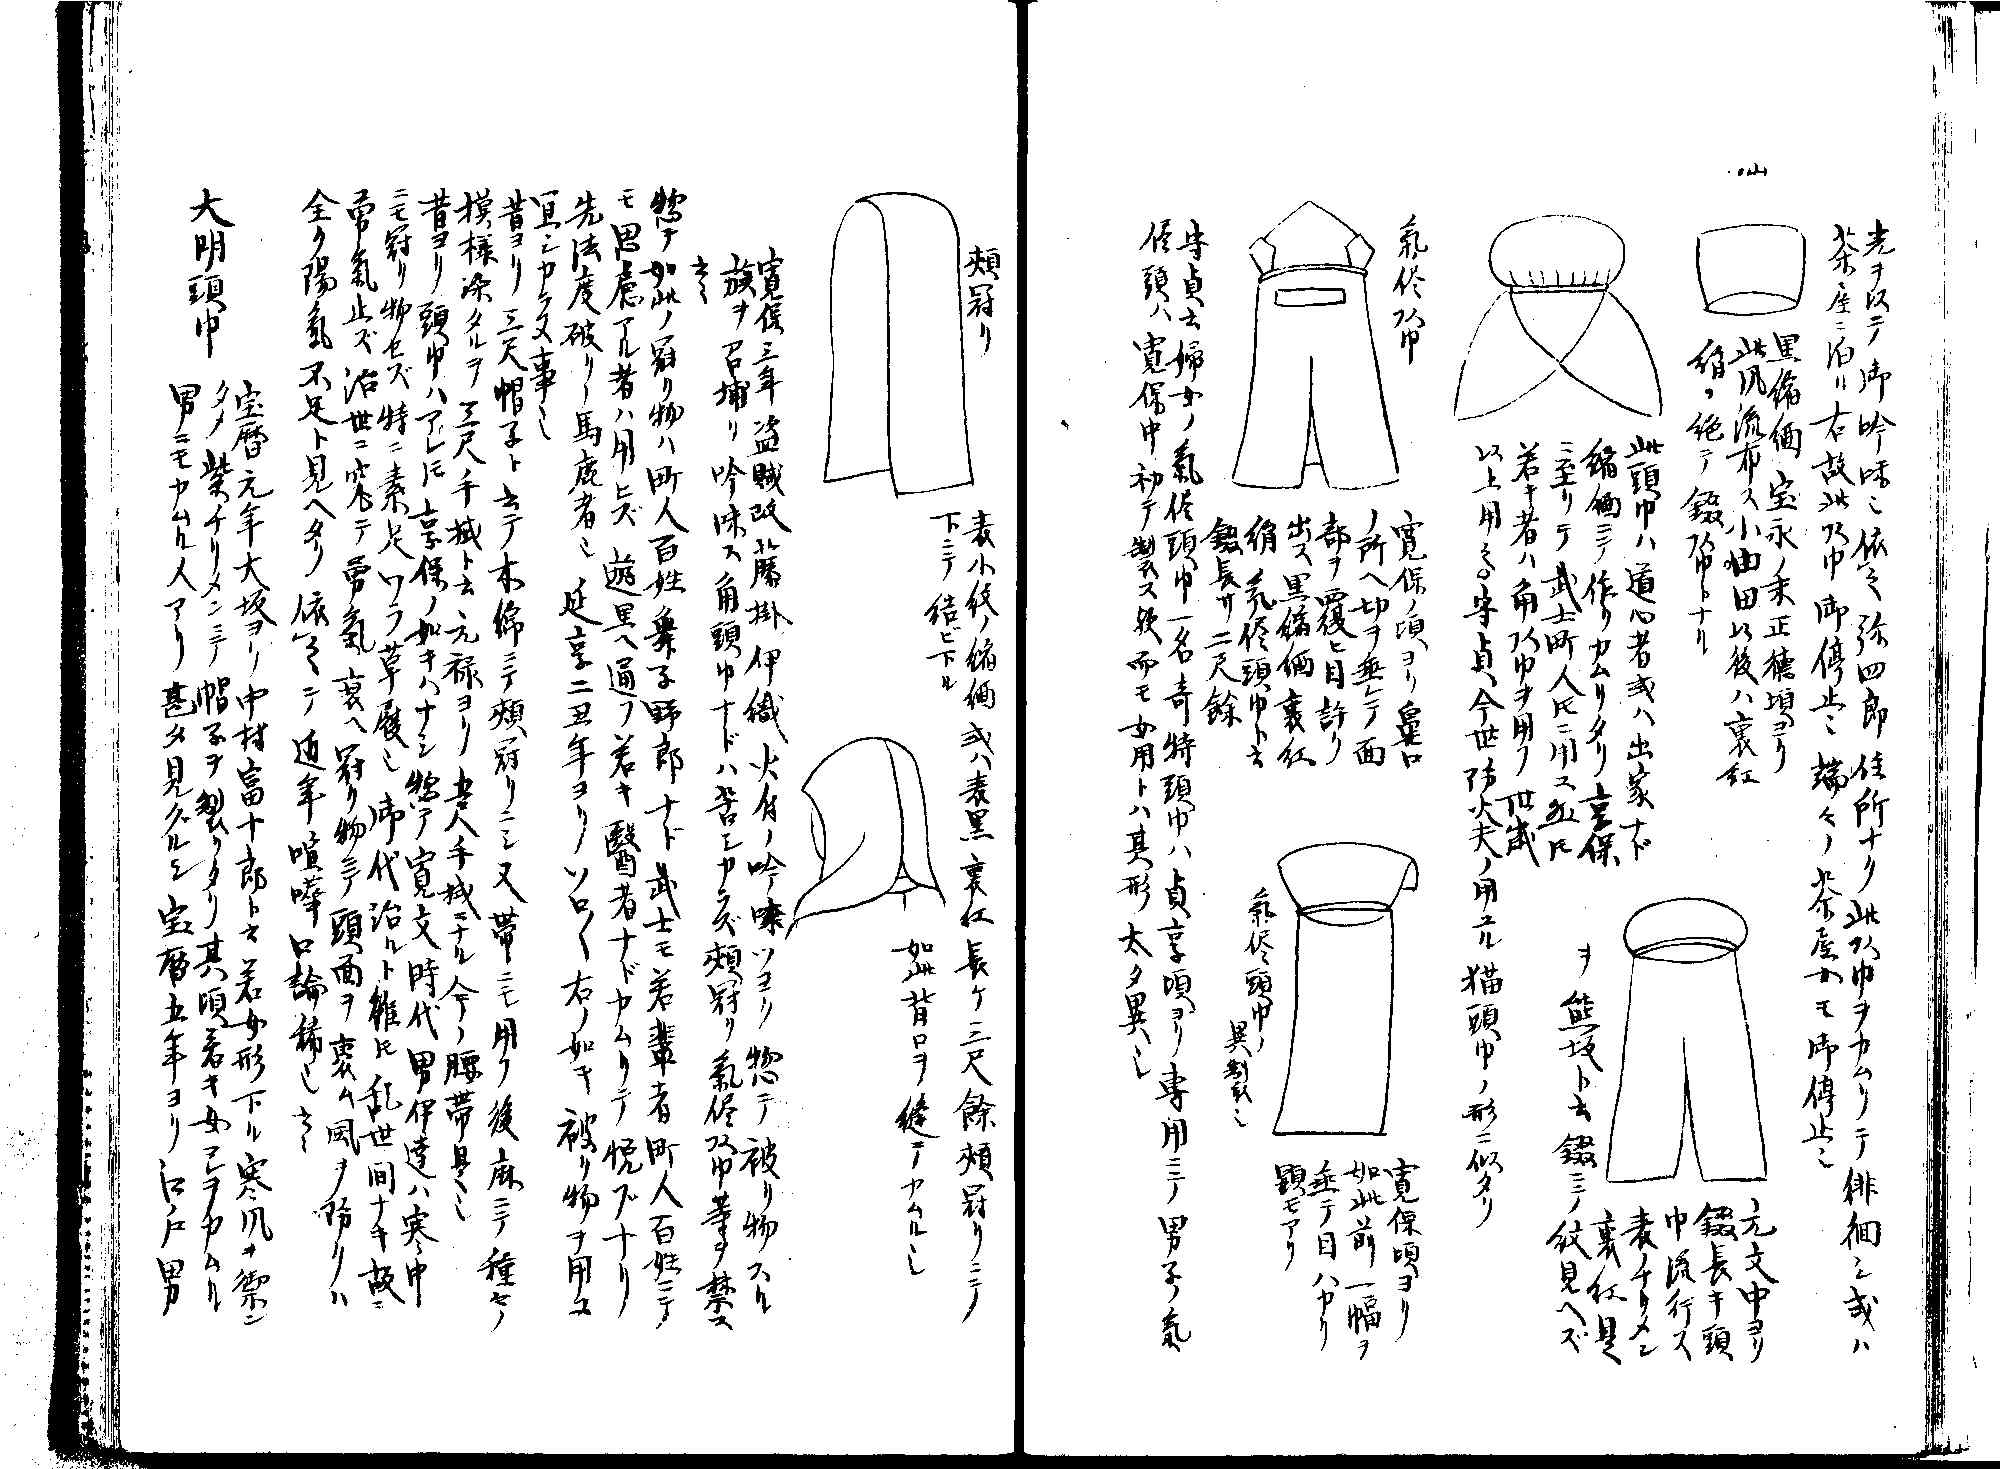 光ヲ以テ御吟味ニ依之弥四郎住所ナク此頭巾ヲカムリテ徘徊シ或ハ
茶屋ニ泊リ右故此頭巾御停止ニ端々ノ茶屋女モ御停止ニ
黒縮緬宝永ノ末正徳頃ヨリ
此風流布ス小油田以後ハ裏紅
絹ヲ絶テ錣頭巾トナリ
此頭巾ハ道心者或ハ出家ナド
縮緬ニテ作リカムリタリ享保
ニ至リテ武士町人ニ用ユ
若キ者ハ角頭巾ヲ用フ
以上用之守貞今世防火夫ノ用ユル猫頭巾ノ形ニ似タリ
元文中ヨリ
錣長キ頭
巾流行ス
表ノチリメン
裏紅是
ヲ熊坂ト云錣ニテ紋見ヘズ
氣侭頭巾
寛保ノ頃ヨリ鼻口
ノ所ヘ切ヲ垂レテ面
部ヲ覆ヒ目許リ
出ス黒縮緬裏紅
絹氣侭頭巾ト云
錣長サ二尺餘
氣侭頭巾ノ
異製也
寛保頃ヨリ
如此前一幅ヲ
垂テ目ハカリ
顕モアリ
守貞云婦女ノ氣侭頭巾一名奇特頭巾ハ貞享頃ヨリ専用ニテ男子ノ氣
侭頭ハ寛保中初テ製ス歟而モ女用トハ其形太タ異也
頬冠リ
表小紋ノ縮緬或ハ表黒裏紅長ケ三尺餘頬冠リニテ
下ニテ結ビ下ル
如此背口ヲ縫テカムル也
寛保三年盗賊改藤掛伊織火付ノ吟味ツヨリ惣テ被リ物スル
族ヲ召捕リ吟味ス角頭巾ナドハ苦シカラズ頬冠リ氣侭頭巾等ヲ禁ス
云々
惣テ如此ノ冠リ物ハ町人百姓舞子野郎ナド武士モ若輩者町人百姓ニテ
モ思慮アル者ハ用ヒズ遊里ヘ通フ若キ醫者ナドカムリテ悦ブナリ
先法度破リノ馬鹿者也延享二丑年ヨリソロ〱右ノ如キ被リ物ヲ用ユ
冝シカラヌ事也
昔ヨリ三尺帽子ト云テ木綿ニテ頬冠リニシ又帯ニモ用フ後麻ニテ種々ノ
模様染タルヲ三尺手拭ト云元禄ヨリ五尺手拭ニナル今ノ腰帯是也
昔ヨリ頭巾ハアレモ享保ノ如キハナシ惣テ寛文時代男伊達ハ寒中
ニモ冠リ物セズ特ニ素足ワラ草履也御代治ルト雖モ乱世間ナキ故ニ
勇氣止ズ治世ニ寒テ勇氣衰ヘ冠リ物ニテ頭面ヲ裹ム風ヲ防リハ
全ク陽氣不足ト見ヘタリ依之ニテ近年喧嘩口論稀也云々
大明頭巾
宝暦元年大坂ヨリ中村富十郎ト云若女形下ル寒風ヲ禦ン
タメ紫チリメンニテ帽子ヲ製リタリ其頃若キ女コレヲカムル
男ニモカムル人アリ甚タ見グルシ宝暦五年ヨリ江戸男